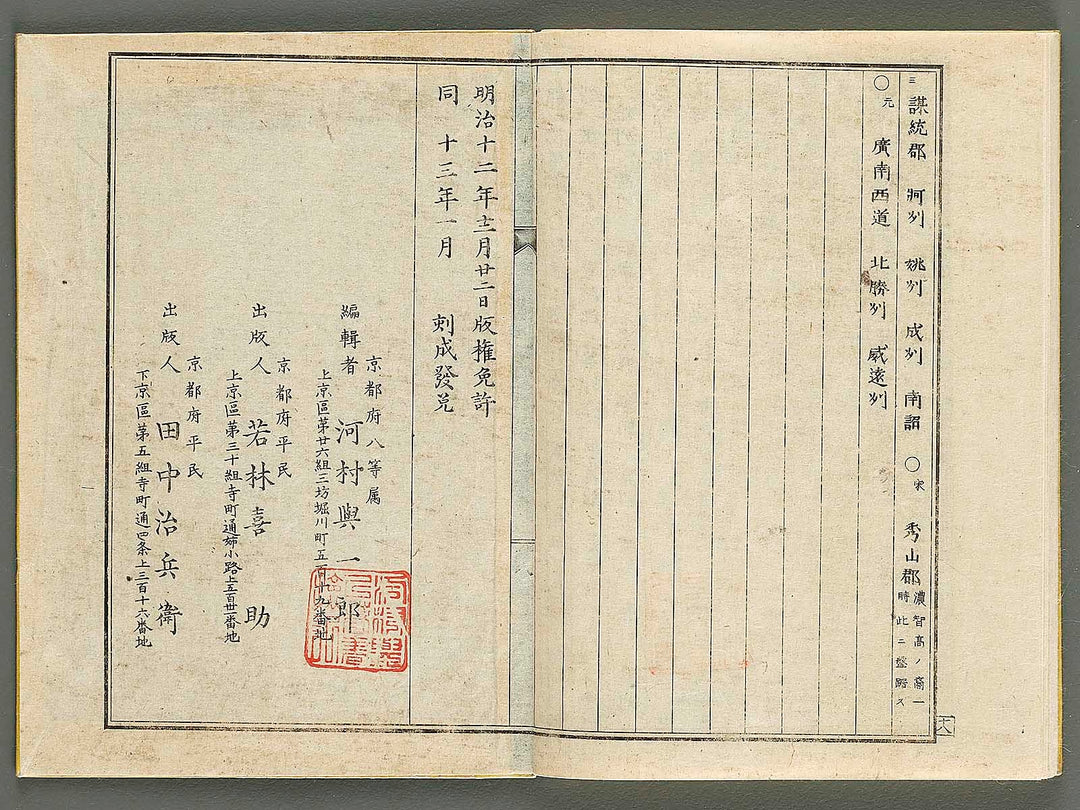 三 謀統郡 牁州 姚州 成州 南詔 〇宋 秀山郡 濃智高ノ裔一時此ニ盤踞ス
〇元 廣南西道 北勝州 威遠州
明治十二年十二月廿二日版權免許
同 十三年一月 刻成發兌
京都府八等属
編輯者 河村與一郎
上京區第廿六組三坊堀川町五百十九番地
京都府平民
出版人 若林喜助
上京區第三十組寺町通姉小路上五百廿一番地
京都府平民
出版人 田中治兵衛
下京區第五組寺町通四条上三百十六番地